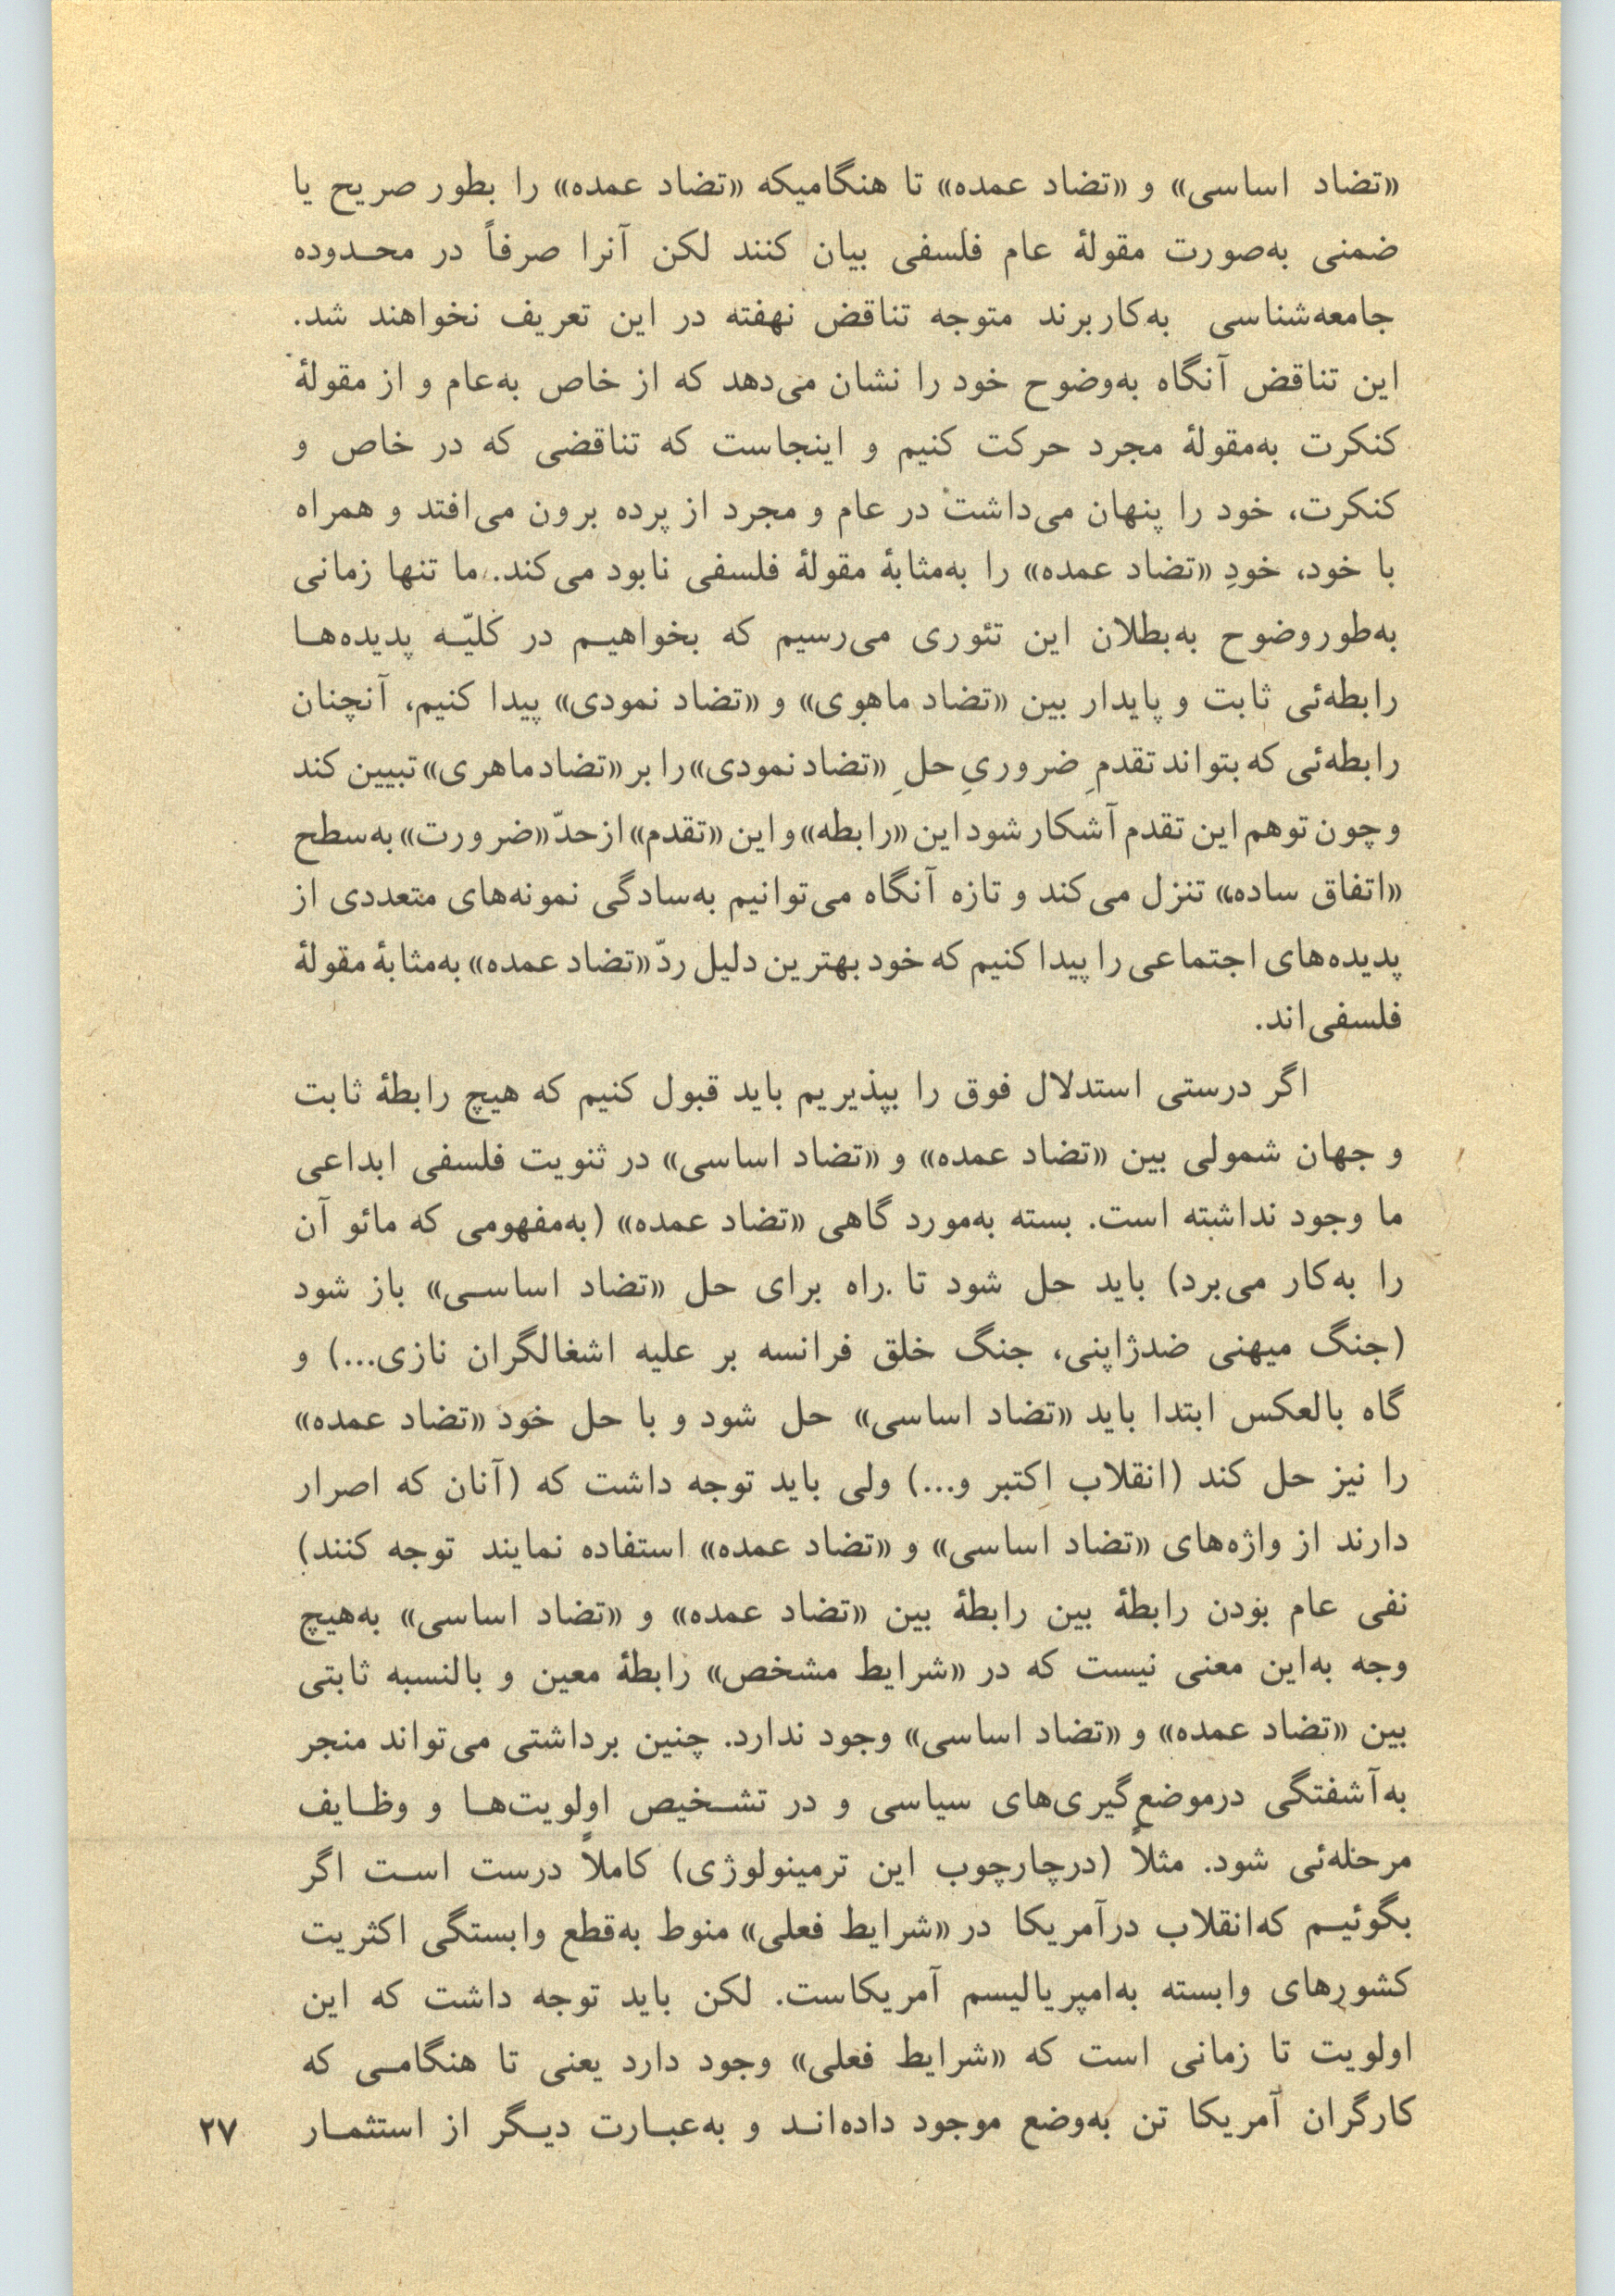 «تضاد اساسی» و «تضاد عمده» تا هنگامیکه «تضاد عمده» را بطور صریح یا
ضمنی به‌صورت مقولهٔ عام فلسفی بیان کنند لکن آنرا صرفاً در محدوده
جامعه‌شناسی به‌کاربرند متوجه تناقض نهفته در این تعریف نخواهند شد.
این تناقض آنگاه به‌وضوح خود را نشان می‌دهد که از خاص به‌عام و از مقولهٔ
کنکرت به‌مقولهٔ مجرد حرکت کنیم و اینجاست که تناقضی که در خاص و
کنکرت، خود را پنهان می‌داشت در عام و مجرد از پرده برون می‌افتد و همراه
با خود، خودِ «تضاد عمده» را به‌مثابهٔ مقولهٔ فلسفی نابود می‌کند. ما تنها زمانی
به‌طوروضوح به‌بطلان این تئوری می‌رسیم که بخواهیم در کلیّه پدیده‌ها
رابطه‌ئی ثابت و پایدار بین «تضاد ماهوی» و «تضاد نمودی» پیدا کنیم، آنچنان
رابطه‌ئی که بتواند تقدمِ ضروریِ حلِ «تضاد نمودی» را بر «تضاد ماهری» تبیین کند
و چون توهم این تقدم آشکار شود این «رابطه» و این «تقدم» از حدّ «ضرورت» به‌سطح
«اتفاق ساده» تنزل می‌کند و تازه آنگاه می‌توانیم به‌سادگی نمونه‌های متعددی از
پدیده‌های اجتماعی را پیدا کنیم که خود بهترین دلیل ردّ «تضاد عمده» به‌مثابهٔ مقولهٔ
فلسفی‌اند.
اگر درستی استدلال فوق را بپذیریم باید قبول کنیم که هیچ رابطهٔ ثابت
و جهان شمولی بین «تضاد عمده» و «تضاد اساسی» در ثنویت فلسفی ابداعی
ما وجود نداشته است. بسته به‌مورد گاهی «تضاد عمده» (به‌مفهومی که مائو آن
را به‌کار می‌برد) باید حل شود تا راه برای حل «تضاد اساسی» باز شود
(جنگ میهنی ضدژاپنی، جنگ خلق فرانسه بر علیه اشغالگران نازی...) و
گاه بالعکس ابتدا باید «تضاد اساسی» حل شود و با حل خود «تضاد عمده»
را نیز حل کند (انقلاب اکتبر و...) ولی باید توجه داشت که (آنان که اصرار
دارند از واژه‌های «تضاد اساسی» و «تضاد عمده» استفاده نمایند توجه کنند)
نفی عام بودن رابطهٔ بین رابطهٔ بین «تضاد عمده» و «تضاد اساسی» به‌هیچ
وجه به‌این معنی نیست که در «شرایط مشخص» رابطهٔ معین و بالنسبه ثابتی
بین «تضاد عمده» و «تضاد اساسی» وجود ندارد. چنین برداشتی می‌تواند منجر
به‌آشفتگی درموضع‌گیری‌های سیاسی و در تشخیص اولویت‌ها و وظایف
مرحله‌ئی شود. مثلاً (درچارچوب این ترمینولوژی) کاملاً درست است اگر
بگوئیم که‌انقلاب درآمریکا در «شرایط فعلی» منوط به‌قطع وابستگی اکثریت
کشورهای وابسته به‌امپریالیسم آمریکاست. لکن باید توجه داشت که این
اولویت تا زمانی است که «شرایط فعلی» وجود دارد یعنی تا هنگامی که
کارگران آمریکا تن به‌وضع موجود داده‌اند و به‌عبارت دیگر از استثمار
۲۷